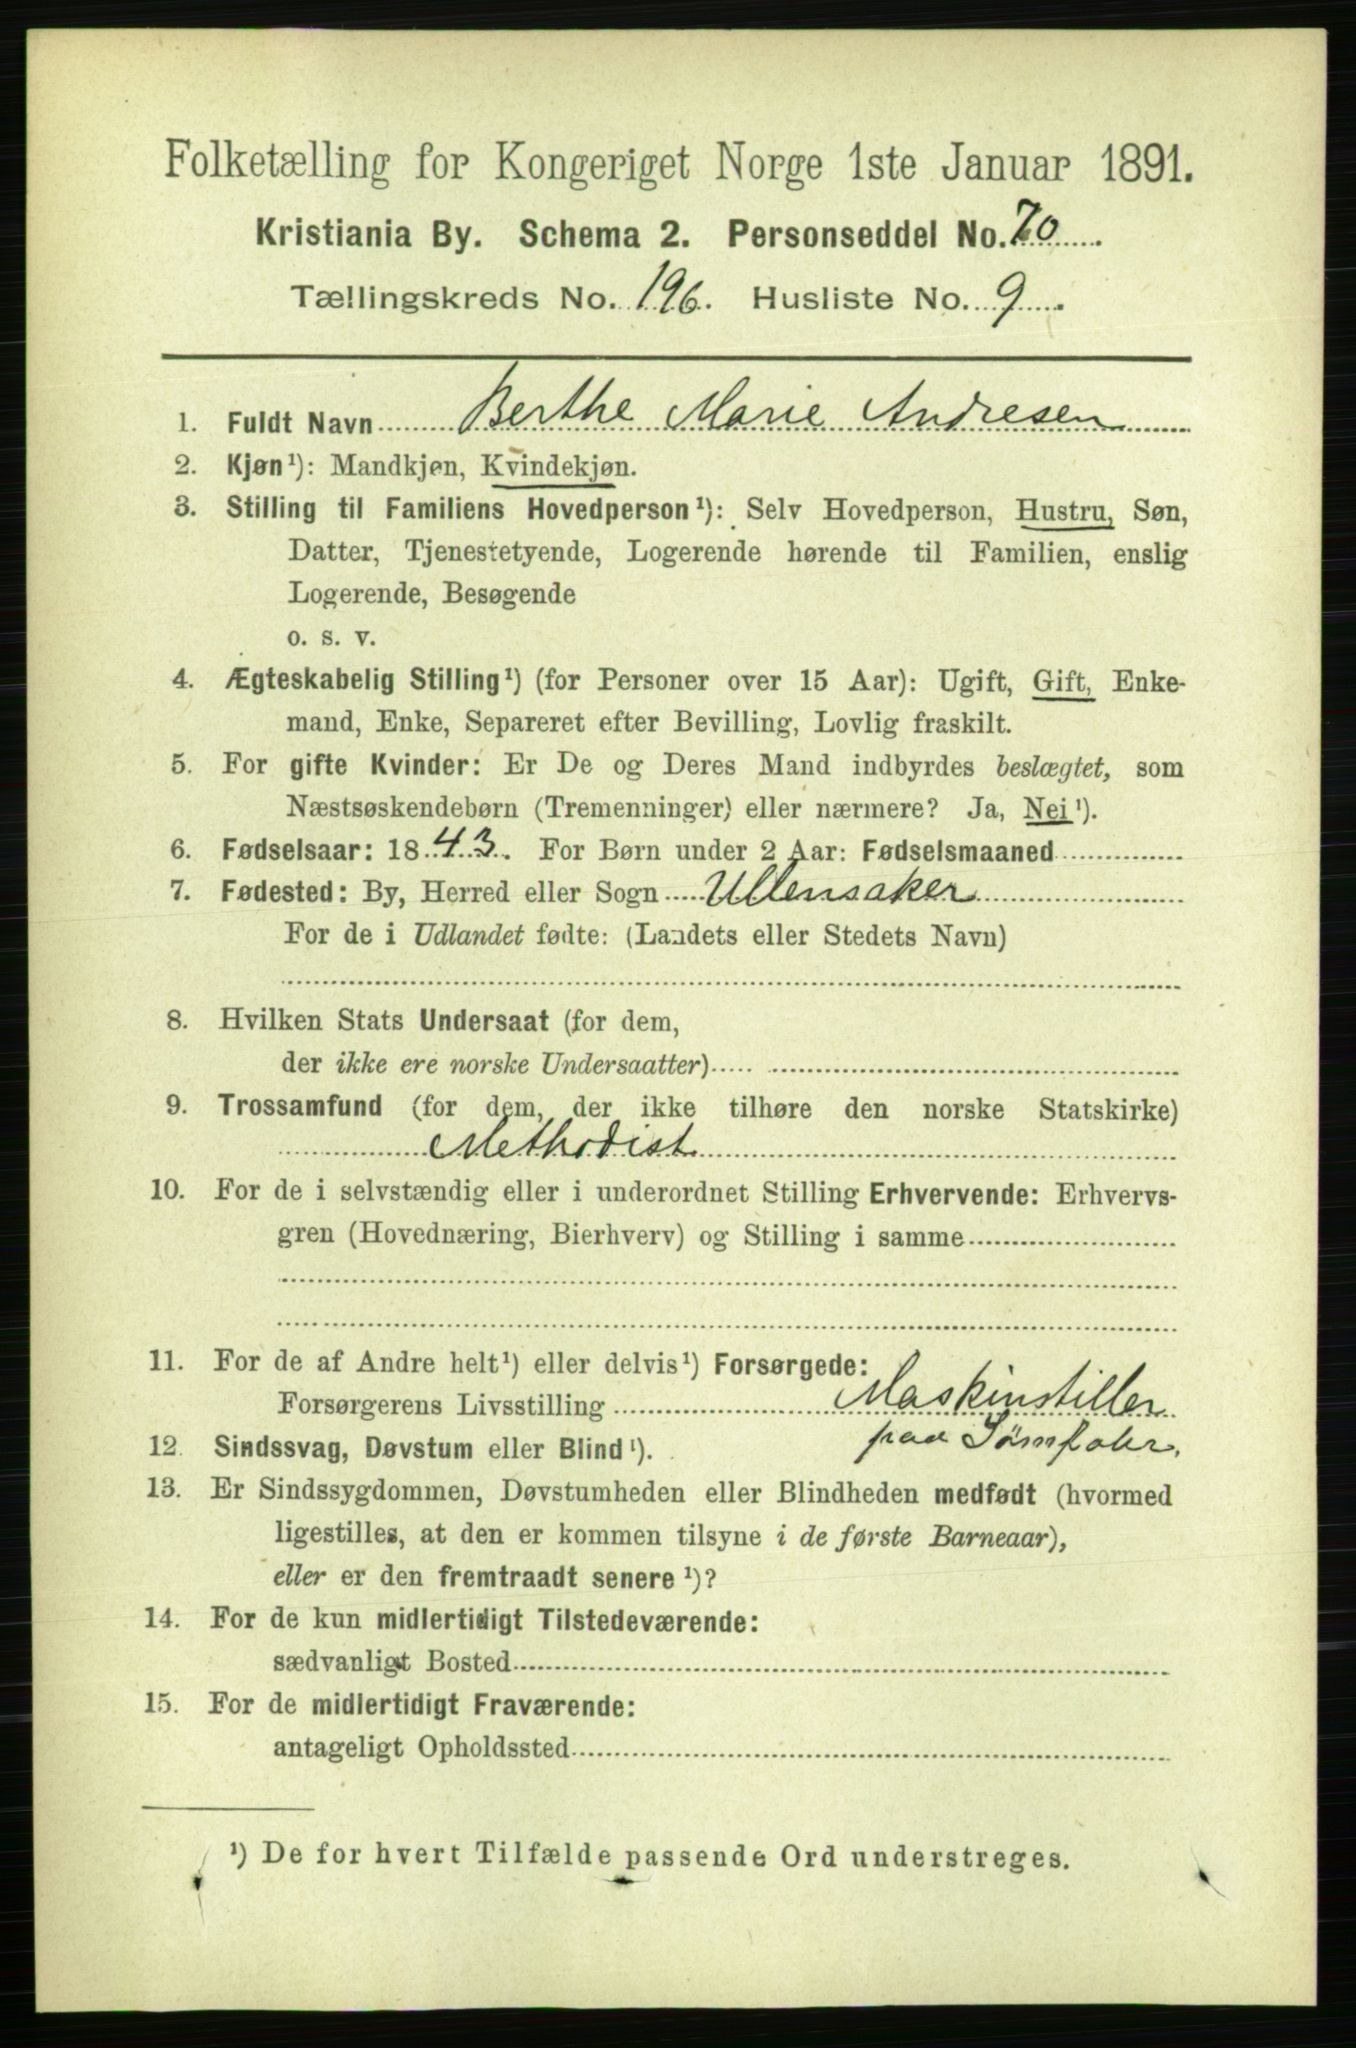 Folketælling for Kongeriget Norge 1ste Januar 1891.
Kristiania By. Schema 2. Personseddel No. 70
Tællingskreds No. 196. Husliste No. 9
1. Fuldt Navn Berthe Marie Andresen
2. Kjøn¹): Mandkjøn, Kvindekjøn.
3. Stilling til Familiens Hovedperson¹): Selv Hovedperson, Hustru, Søn,
Datter, Tjenestetyende, Logerende hørende til Familien, enslig
Logerende, Besøgende
o. s. v.
4. Ægteskabelig Stilling¹) (for Personer over 15 Aar): Ugift, Gift, Enke-
mand, Enke, Separeret efter Bevilling, Lovlig fraskilt.
5. For gifte Kvinder: Er De og Deres Mand indbyrdes beslægtet, som
Næstsøskendebørn (Tremenninger) eller nærmere? Ja, Nei¹).
6. Fødselsaar: 1843. For Børn under 2 Aar: Fødselsmaaned
7. Fødested: By, Herred eller Sogn Ullensaker
For de i Udlandet fødte: (Landets eller Stedets Navn)
8. Hvilken Stats Undersaat (for dem,
der ikke ere norske Undersaatter)
9. Trossamfund (for dem, der ikke tilhøre den norske Statskirke)
Methodist
10. For de i selvstændig eller i underordnet Stilling Erhvervende: Erhvervs-
gren (Hovednæring, Bierhverv) og Stilling i samme
11. For de af Andre helt¹) eller delvis¹) Forsørgede:
Forsørgerens Livsstilling Maskinstiller
paa Sømfabr.
12. Sindssvag, Døvstum eller Blind¹).
13. Er Sindssygdommen, Døvstumheden eller Blindheden medfødt (hvormed
ligestilles, at den er kommen tilsyne i de første Barneaar),
eller er den fremtraadt senere¹)?
14. For de kun midlertidigt Tilstedeværende:
sædvanligt Bosted
15. For de midlertidigt Fraværende:
antageligt Opholdssted
¹) De for hvert Tilfælde passende Ord understreges.